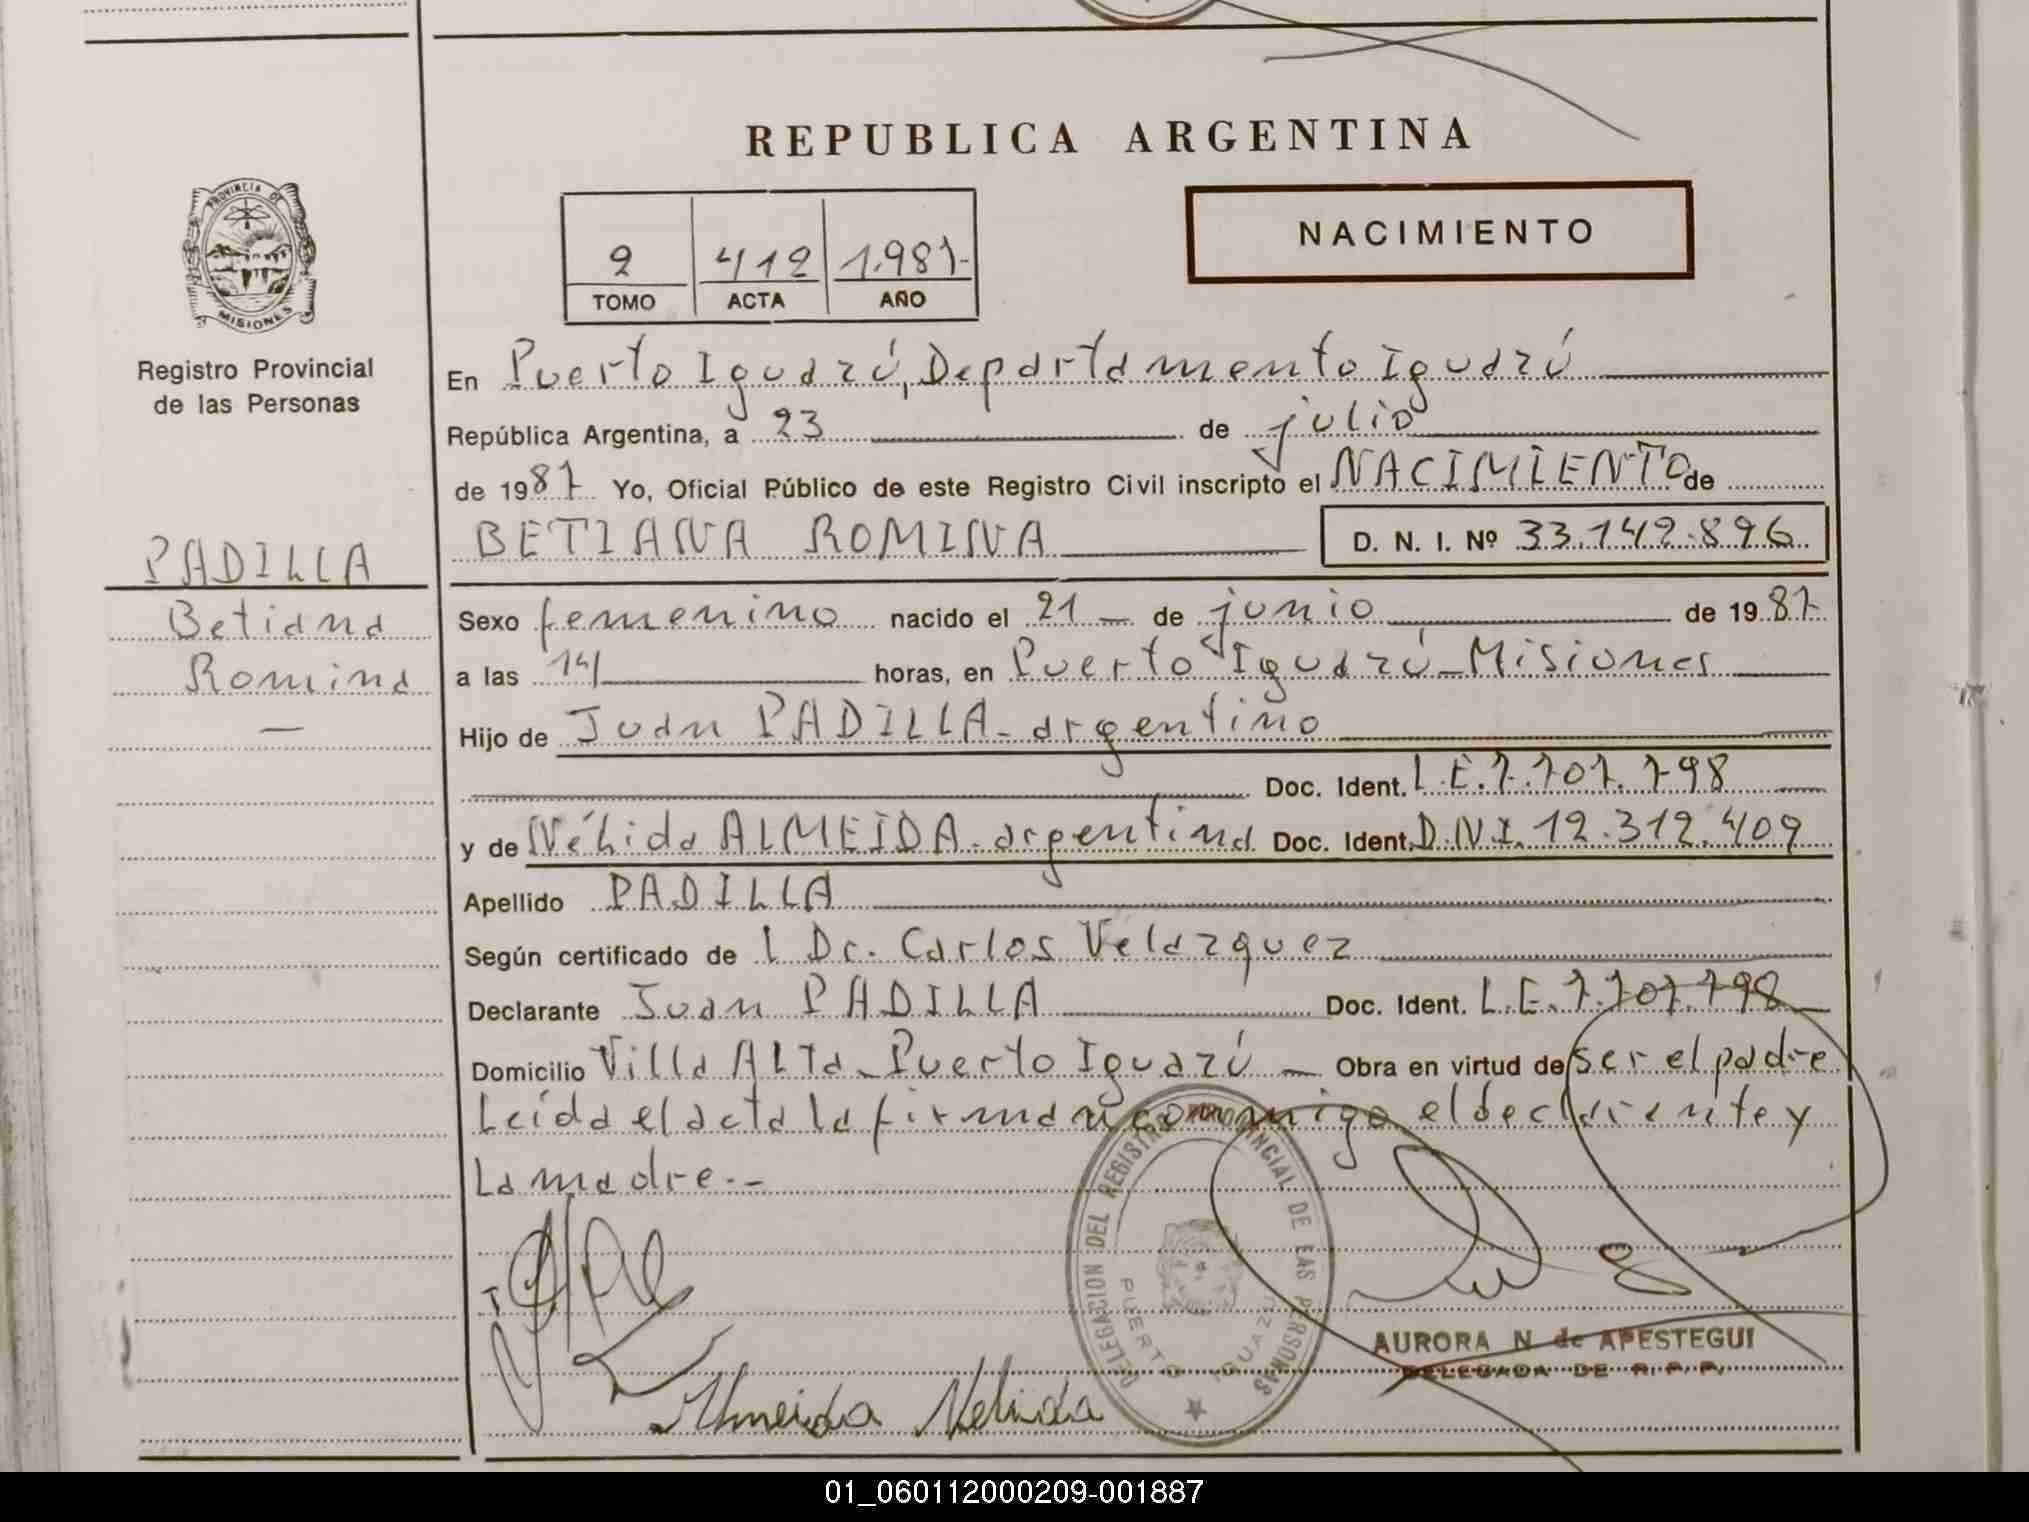 REPUBLICA ARGENTINA
PROVINCIA DE
MISIONES
Registro Provincial
de las Personas
2 412 1.987-
TOMO ACTA AÑO
NACIMIENTO
En Puerto Iguazú, Departamento Iguazú
República Argentina, a 23 de julio
de 1987 Yo, Oficial Público de este Registro Civil inscripto el NACIMIENTO de
BETIANA ROMINA D. N. I. Nº 33.142.896
PADILLA
Betiana
Romina
—
Sexo femenino nacido el 21 — de junio de 1987-
a las 14 horas, en Puerto Iguazú - Misiones
Hijo de Juan PADILLA - argentino
Doc. Ident. L.E. 7.707.798
y de Nélida ALMEIDA - argentina Doc. Ident. D.N.I. 12.312.409
Apellido PADILLA
Según certificado de l Dr. Carlos Velazquez
Declarante Juan PADILLA Doc. Ident. L.E. 7.707.798
Domicilio Villa ALTa - Puerto Iguazú — Obra en virtud de ser el padre
Leída el acta la firman conmigo el declarante y
La madre.-
DELEGACION DEL REGISTRO PROVINCIAL DE LAS PERSONAS
PUERTO IGUAZU
AURORA N de APESTEGUI
DELEGADA DE R.P.P.
Almeida Nelida
01_060112000209-001887